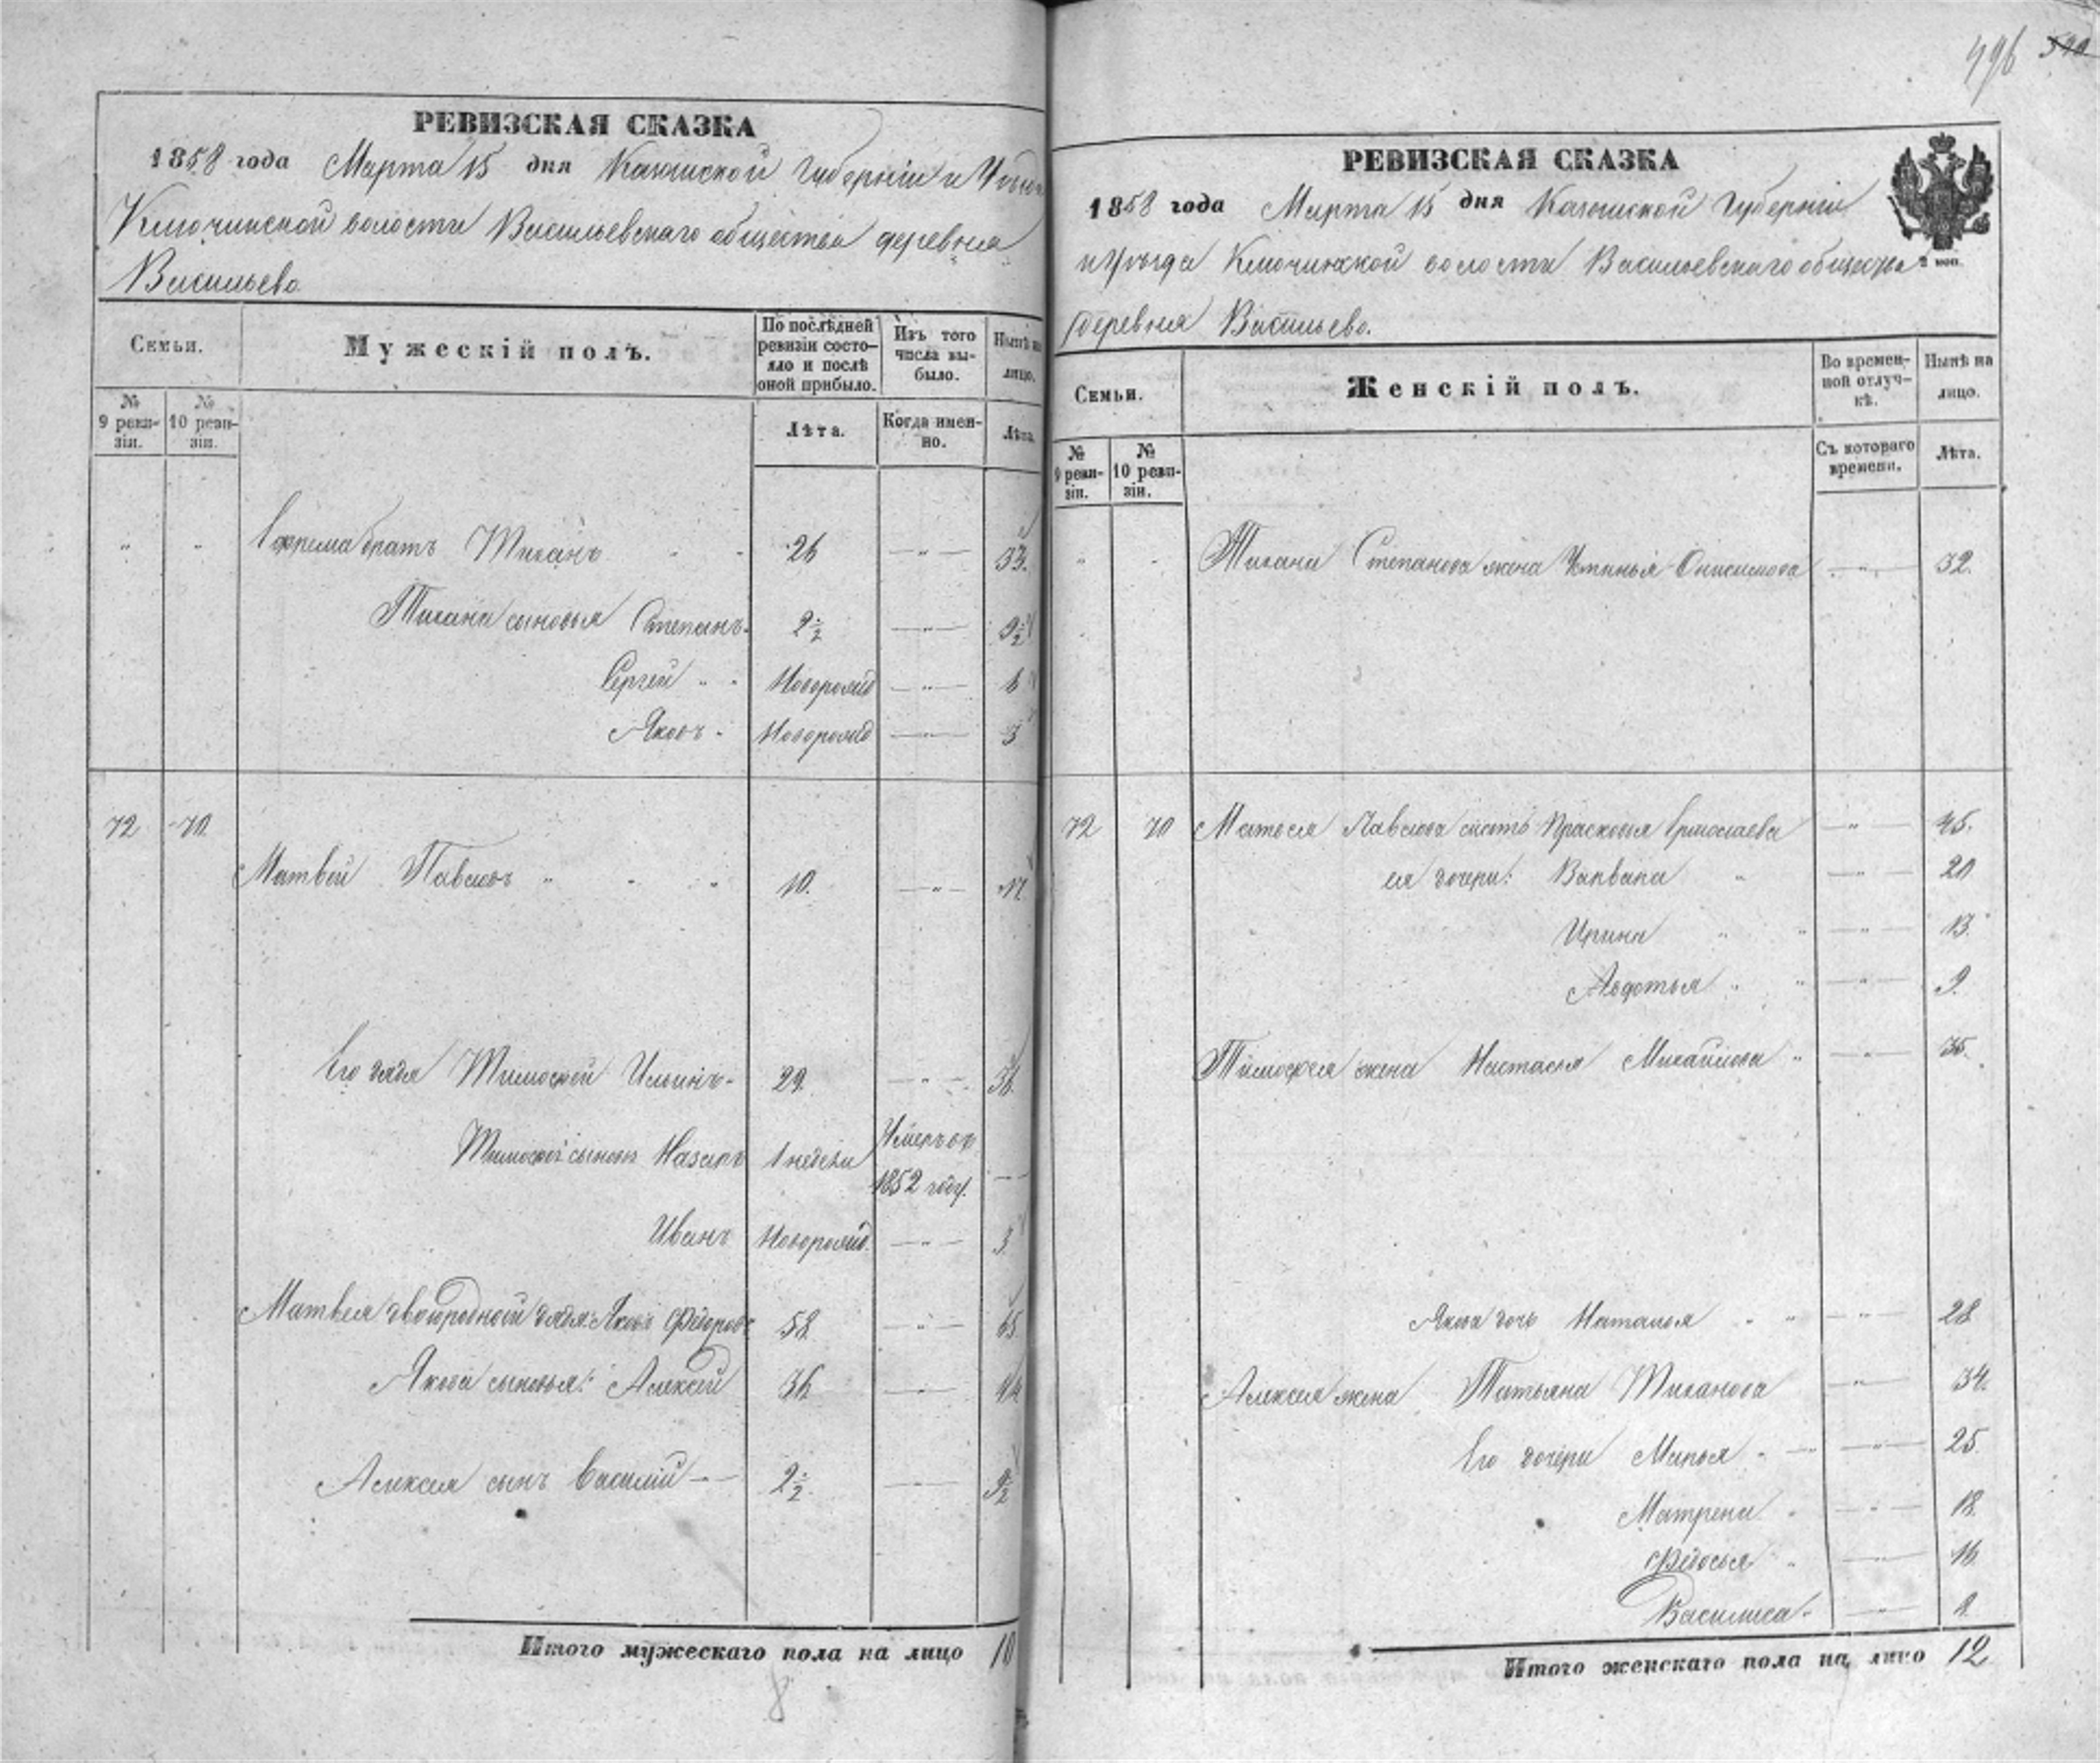 496 540
РЕВИЗСКАЯ СКАЗКА
1858 года Марта 15 дня Казанской Губернии и Уѣзда
Ключинской волости Васильевскаго общества деревня
Васильево
Семьи.
Мужескій полъ.
По послѣдней ревизіи состояло и послѣ оной прибыло.
Изъ того числа выбыло.
Нынѣ на лицо.
№ 9 ревизіи.
№ 10 ревизіи.
Лѣта.
Когда именно.
Лѣта.
" " Ефрема братъ Тиханъ " " 26 — " — 33.
Тихана сыновья Степанъ 2 1/2 — " — 9 1/2
Сергей " " Новорожд — " — 6
Яковъ " Новорожд — " — 3
72 70
Матвей Павловъ " " " 10. — " — 17
Его дядя Тимофей Ильинъ 29. — " — 36.
Тимофея сыновья Назаръ 1 недели Умеръ въ 1852 году. —
Иванъ Новорожд. — " — 3.
Матвея двоюродной дядя: Яковъ Федоровъ 58. — " — 65
Якова сыновья: Алексей 36 — " — 44
Алексея сынъ Василій — 2 1/2. — " — 9 1/2
Итого мужескаго пола на лицо 10
8
РЕВИЗСКАЯ СКАЗКА
1858 года Марта 15 дня Казанской Губерніи
и уѣзда Ключинской волости Васильевскаго общества
деревня Васильево.
2 коп.
Семьи.
Женскій полъ.
Во временной отлучкѣ.
Нынѣ на лицо.
№ 9 ревизіи.
№ 10 ревизіи.
Съ котораго времени.
Лѣта.
" " Тихана Степанова жена Устинья Онисимова — " — 32.
72 70 Матвея Павлова мать Прасковья Ермолаева — " — 45.
ея дочери: Варвара " — " — 20
Ирина " " — " — 13.
Авдотья " " — " — 9.
Тимофея жена Настасья Михайлова " — " — 35.
Якова дочь Наталья " " — " — 28
Алексея жена Татьяна Тиханова — " — 34.
Его дочери Марья " — " — 25.
Матрена " — " — 18.
Федосья " — " — 16.
Василиса " — " — 2.
Итого женскаго пола на лицо 12